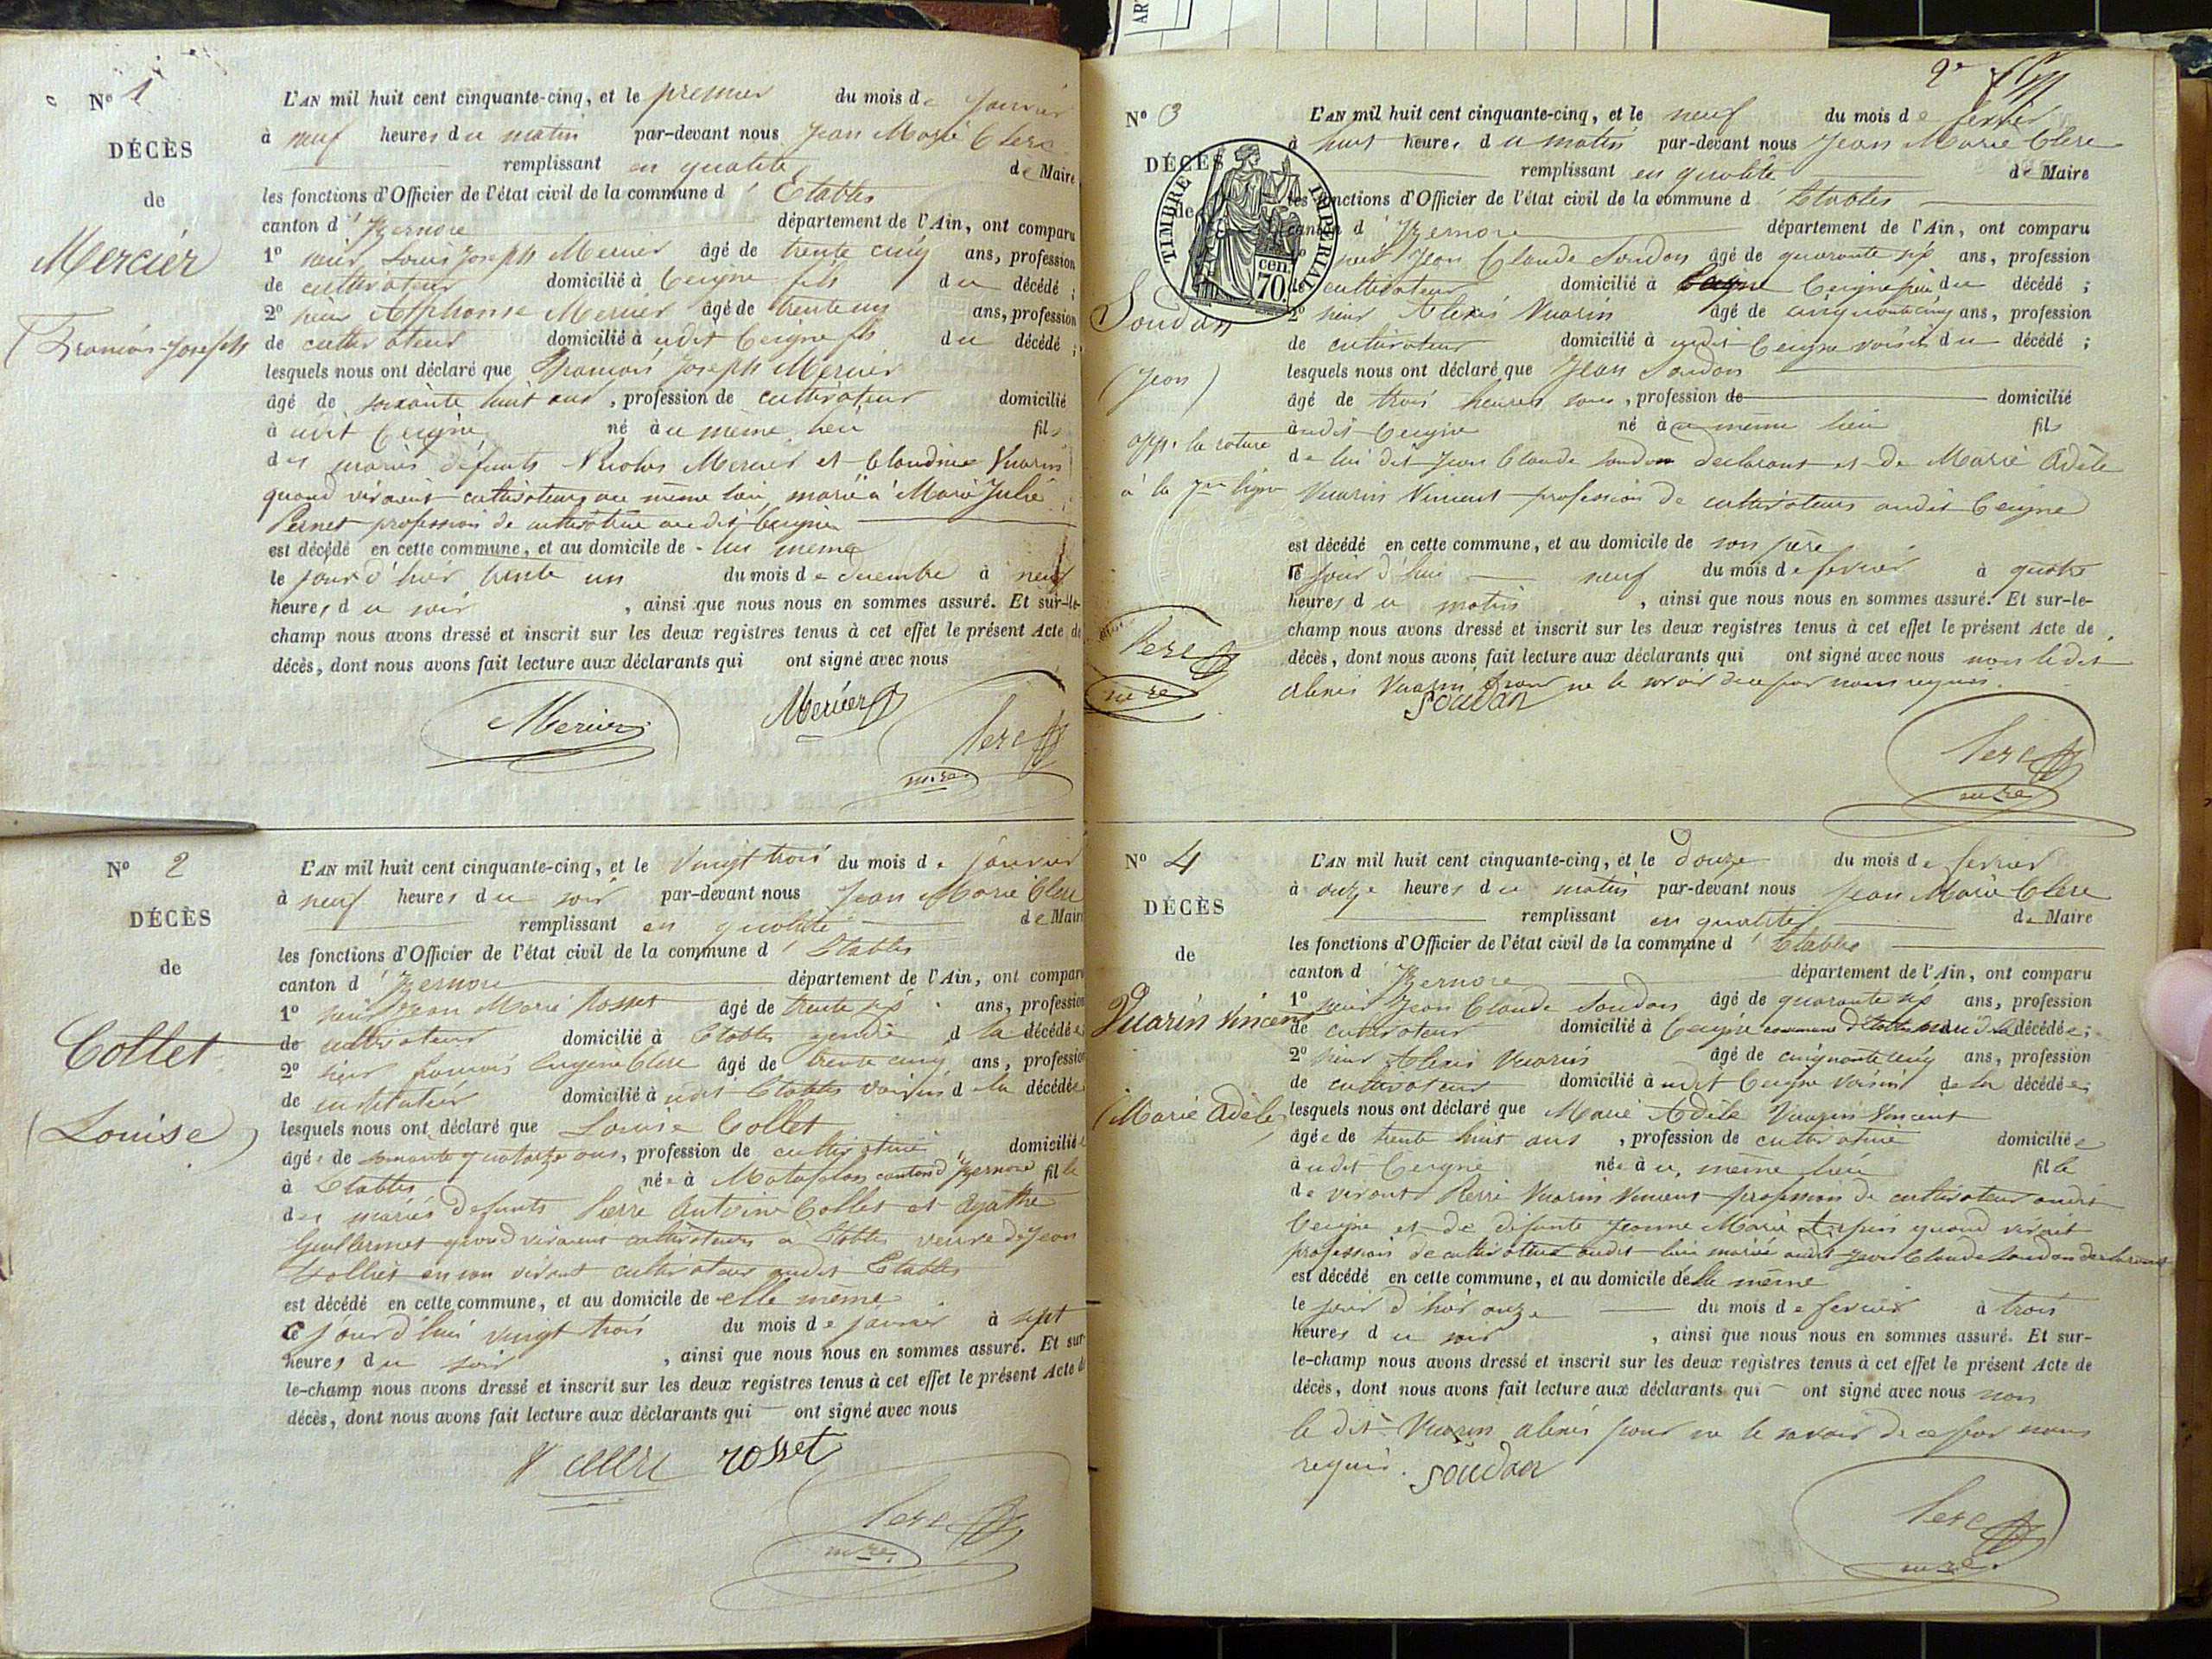 N° 1
DÉCÈS
de
Mercier
(François-Joseph
L'AN mil huit cent cinquante-cinq, et le premier du mois de janvier
à neuf heures du matin par-devant nous Jean Marie Clerc
remplissant en qualité de Maire
les fonctions d'Officier de l'état civil de la commune d'Etables
canton d'Izernore département de l'Ain, ont comparu
1° sieur Louis Joseph Mercier âgé de trente cinq ans, profession
de cultivateur domicilié à Ceigne fils du décédé ;
2° sieur Alphonse Mercier âgé de trente un ans, profession
de cultivateur domicilié à udit Ceigne fils du décédé ;
lesquels nous ont déclaré que François Joseph Mercier
âgé de soixante huit ans, profession de cultivateur domicilié
à udit Ceigne né à u même lieu fils
des mariés défunts Nicolas Mercier et Claudine Vuarin
quand vivaient cultivateurs au même lieu, marié à Marie Julie
Pernet profession de cultivatrice au dit Ceigne
est décédé en cette commune, et au domicile de lui même
le jour d'hier trente un du mois de decembre à neuf
heures du soir, ainsi que nous nous en sommes assuré. Et sur-le-
champ nous avons dressé et inscrit sur les deux registres tenus à cet effet le présent Acte de
décès, dont nous avons fait lecture aux déclarants qui ont signé avec nous
Mercier Mercier Clerc
mre
N° 2
DÉCÈS
de
Collet
(Louise)
L'AN mil huit cent cinquante-cinq, et le vingt trois du mois de janvier
à neuf heures du soir par-devant nous Jean Marie Clerc
remplissant en qualité de Maire
les fonctions d'Officier de l'état civil de la commune d'Etables
canton d'Izernore département de l'Ain, ont comparu
1° sieur Jean Marie Rosset âgé de trente six ans, profession
de cultivateur domicilié à Etables gendre d la décédée
2° sieur François Eugène Clerc âgé de trente cinq ans, profession
de instituteur domicilié à udit Etables voisin d la décédée
lesquels nous ont déclaré que Louise Collet
âgée de soixante quatorze ans, profession de cultivatrice domiciliée
à Etables née à Matafelon canton d'Izernore fille
des mariés defunts Pierre Antoine Collet et Agathe
Guillermet quand vivaient cultivateurs à Etables veuve de Jean
en son vivant cultivateur audit Etables
est décédé en cette commune, et au domicile de elle même
Ce jourd'hui vingt trois du mois de janvier à sept
heures du soir, ainsi que nous nous en sommes assuré. Et sur-
le-champ nous avons dressé et inscrit sur les deux registres tenus à cet effet le présent Acte de
décès, dont nous avons fait lecture aux déclarants qui ont signé avec nous
Clerc rosset
Clerc
mre
2e
N° 3
DÉCÈS
de
TIMBRE IMPÉRIAL
70 cen.
Soudan
(Jean)
app. la rature
à la 7me ligne
Clerc
mre
L'AN mil huit cent cinquante-cinq, et le neuf du mois de fevrier
à huit heures du matin par-devant nous Jean Marie Clerc
remplissant en qualité de Maire
les fonctions d'Officier de l'état civil de la commune d'Etables
canton d'Izernore département de l'Ain, ont comparu
1° sieur Jean Claude Soudan âgé de quarante six ans, profession
de cultivateur domicilié à Ceigne père du décédé ;
2° sieur Alexis Vuarin âgé de cinquante cinq ans, profession
de cultivateur domicilié à udit Ceigne voisin du décédé ;
lesquels nous ont déclaré que Jean Soudan
âgé de trois heures, profession de domicilié
audit Ceigne né à u même lieu fils
de lui dit Jean Claude Soudan declarant et de Marie Adèle
Vuarin Vincent profession de cultivateurs audit Ceigne
est décédé en cette commune, et au domicile de son père
Ce jour d'hui neuf du mois de fevrier à quatre
heures du matin, ainsi que nous nous en sommes assuré. Et sur-le-
champ nous avons dressé et inscrit sur les deux registres tenus à cet effet le présent Acte de
décès, dont nous avons fait lecture aux déclarants qui ont signé avec nous non le dit
alexis Vuarin pour ne le savoir de ce par nous requis.
soudan
Clerc
mre
N° 4
DÉCÈS
de
Vuarin Vincent
(Marie Adèle)
L'AN mil huit cent cinquante-cinq, et le douze du mois de fevrier
à onze heures du matin par-devant nous Jean Marie Clerc
remplissant en qualité de Maire
les fonctions d'Officier de l'état civil de la commune d'Etables
canton d'Izernore département de l'Ain, ont comparu
1° sieur Jean Claude Soudan âgé de quarante six ans, profession
de cultivateur domicilié à Ceigne commune d'Etables mari de la décédée ;
2° sieur Alexis Vuarin âgé de cinquante cinq ans, profession
de cultivateur domicilié à udit Ceigne voisin de la décédée ;
lesquels nous ont déclaré que Marie Adèle Vuarin Vincent
âgée de trente huit ans, profession de cultivatrice domiciliée
à udit Ceigne née à u même lieu fille
de vivant Pierre Vuarin Vincent profession de cultivateur audit
Ceigne et de défunte Jeanne Marie quand vivait
profession de cultivateur audit lieu mariée audit Jean Claude Soudan declarant
est décédé en cette commune, et au domicile d'elle même
le jour d'hier onze du mois de fevrier à trois
heures du soir, ainsi que nous nous en sommes assuré. Et sur-
le-champ nous avons dressé et inscrit sur les deux registres tenus à cet effet le présent Acte de
décès, dont nous avons fait lecture aux déclarants qui ont signé avec nous non
le dit Vuarin alexis pour ne le savoir de ce par nous
requis. soudan
Clerc
mre